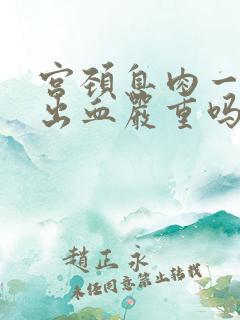 宫颈息肉一
出血严重吗
赵正永
未经同意禁止转载